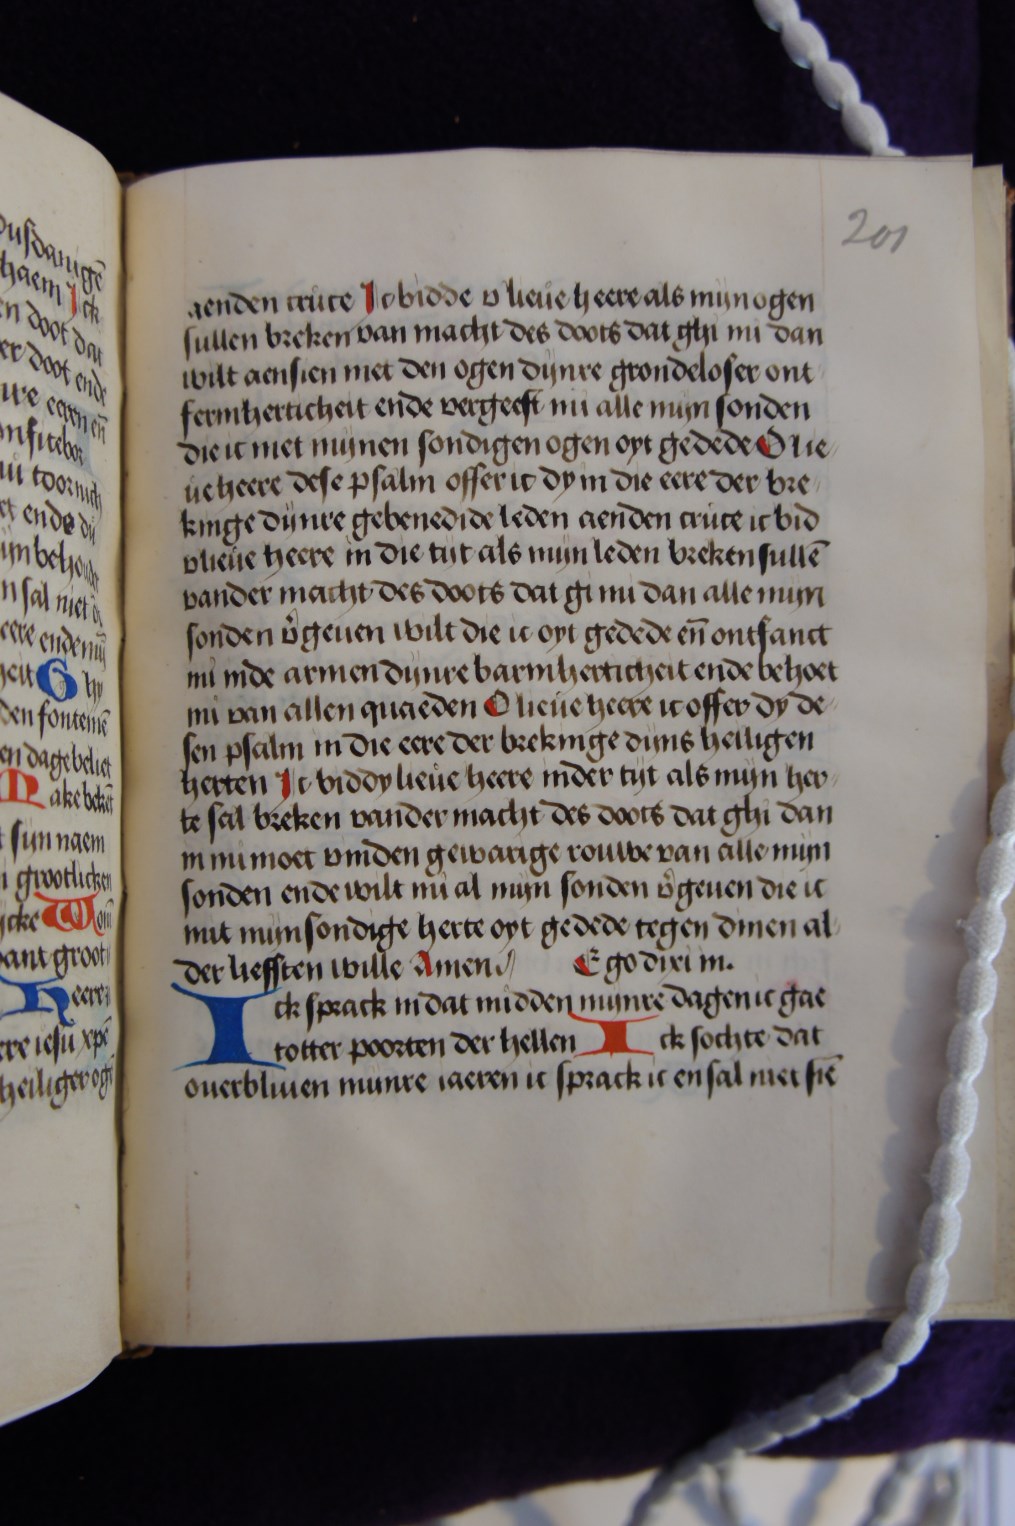 dusdanigē
haem Ick
en doot dat
er doot ende
uwe eeren eñ
nfitebor
mi toornich
et ende du
ijn behou
n sal niet
eere ende mij
heit Ghy
den fonteinē
en dage beliet
Make bekēt
t sijn naem
n grootlicken
ijcke Wonī
want groot
Heere
ere iesu xpē
heiliger ogē
201
aenden cruce Ic bidde v lieue heere als mijn ogen
sullen breken van macht des doots dat ghi mi dan
wilt aensien met den ogen dijnre grondeloser ont
fermherticheit ende vergeeft mi alle mijn sonden
die ic met mijnen sondigen ogen oyt gedede O lie
ue heere dese psalm offer ic dy in die eere der bre
kinge dijnre gebenedide leden aenden cruce ic bid
v lieue heere in die tijt als mijn leden breken sullē
vander macht des doots dat gi mi dan alle mijn
sonden v̓geuen wilt die ic oyt gedede eñ ontfanct
mi inde armen dijnre barmherticheit ende behoet
mi van allen quaeden O lieue heere ic offer dy de
sen psalm in die eere der brekinge dijns heiligen
herten Ic bid dy lieue heere inder tijt als mijn her
te sal breken vander macht des doots dat ghi dan
in mi moet vinden gewarige rouwe van alle mijn
sonden ende wilt mi al mijn sonden v̓geuen die ic
mit mijn sondige herte oyt gedede tegen dinen al
der liefsten wille Amen Ego dixi in.
Ick sprack in dat midden mijnre dagen ic gae
totter poorten der hellen Ick sochte dat
ouerbliuen mijnre iaeren ic sprack ic en sal niet siē